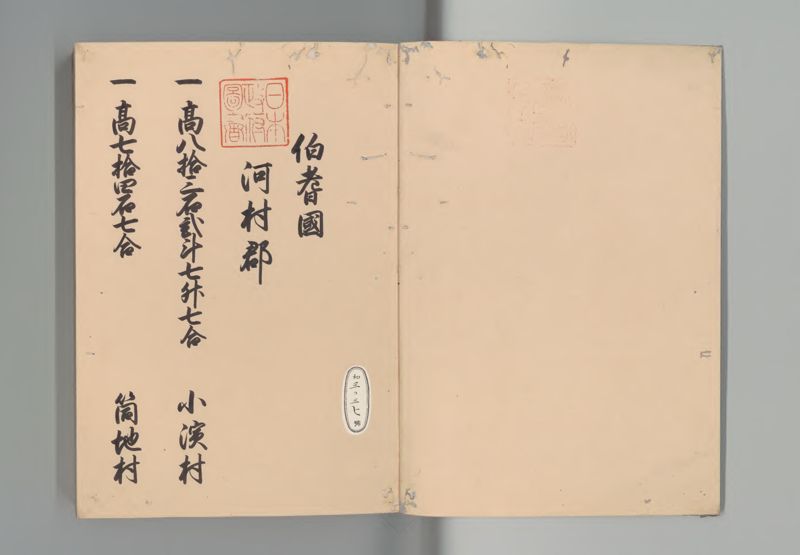 伯耆國
河村郡
日本
政府
圖書
一 高八拾二石貳斗七升七合 小濱村
一 高七拾四石七合 筒地村